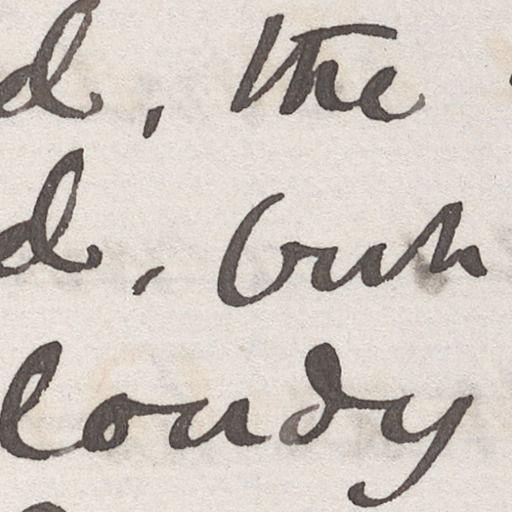 d, the
d, but
loudy